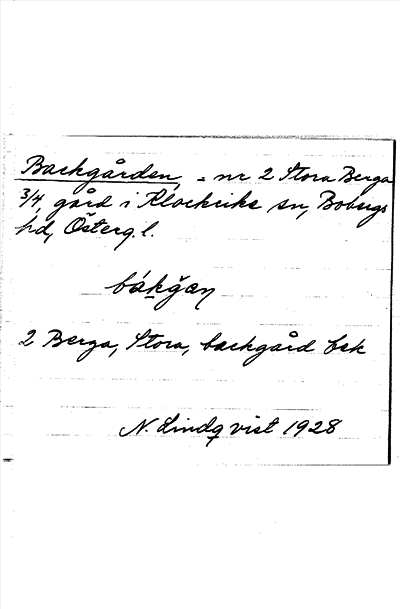 Backgården, = nr 2 Stora Berga
3/4, gård i Klockrike sn, Bobergs
hd, Österg. l.
2 Berga, Stora, backgård bsk
N. Lindqvist 1928